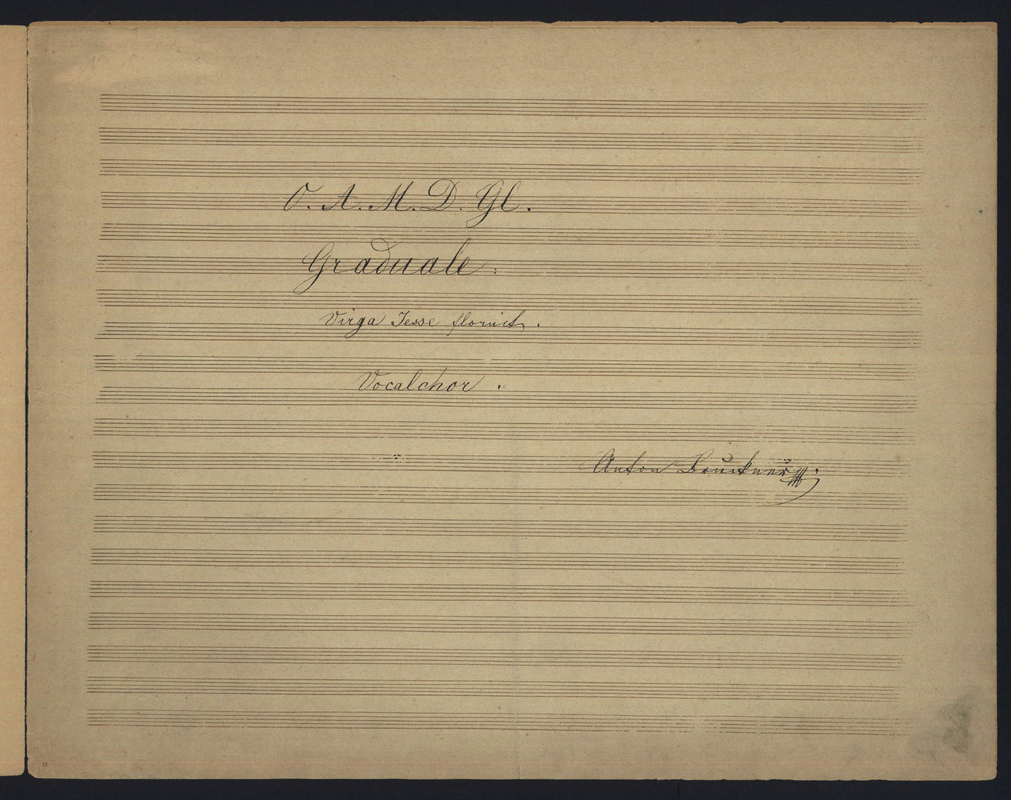 O. A. M. D. Gl.
Graduale:
Virga Jesse floruit.
Vocalchor.
Anton Bruckner